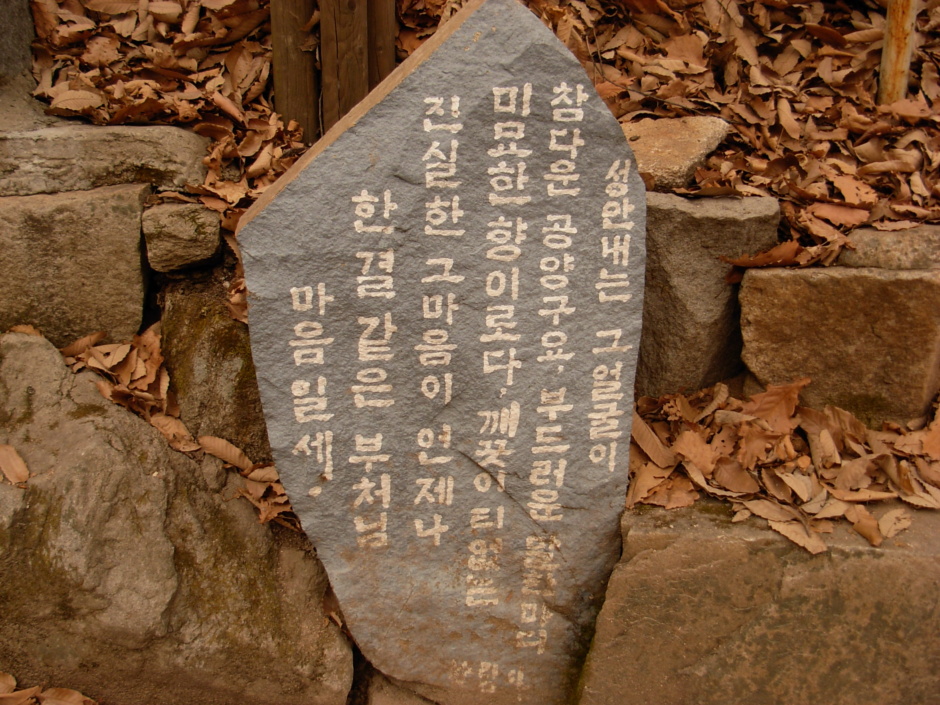 성안내는 그얼굴이
참다운 공양구요, 부드러운 말한마디
미묘한 향이로다. 깨끗이 티없는
진실한 그마음이 언제나
한결같은 부처님
마음일세.